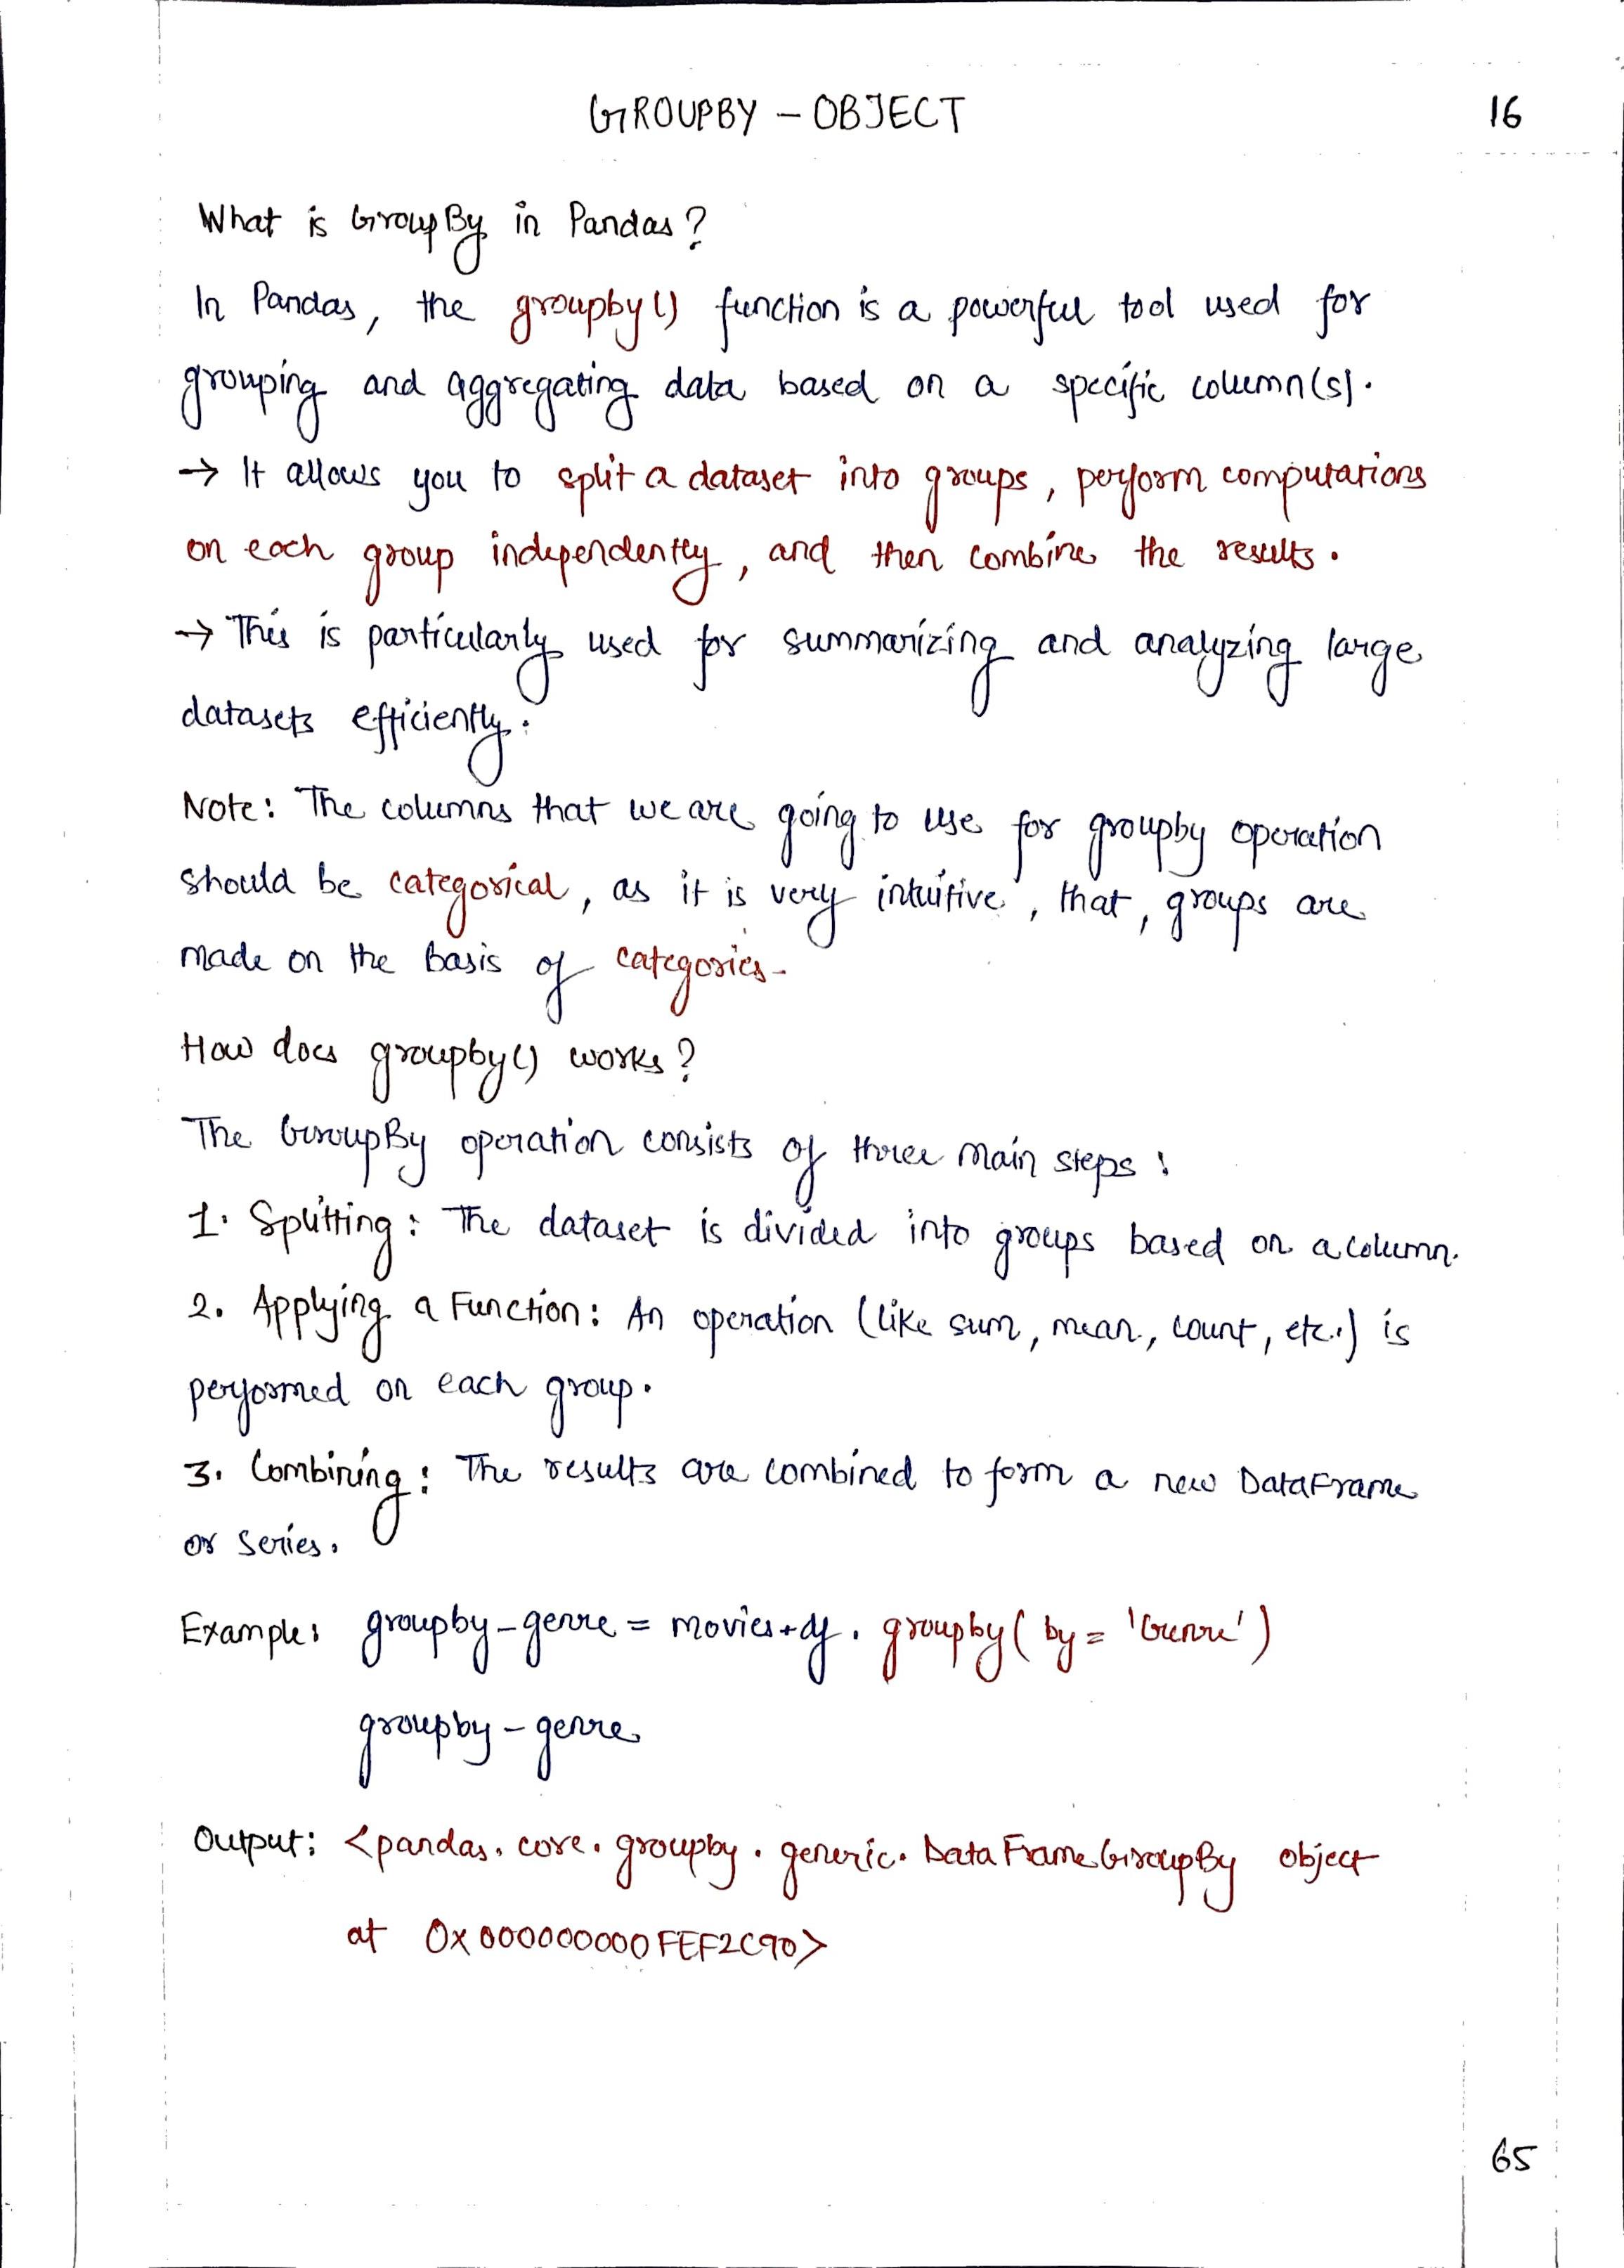 GROUPBY - OBJECT
16
What is GroupBy in Pandas?
In Pandas, the groupby() function is a powerful tool used for
grouping and aggregating data based on a specific column(s).
→ It allows you to split a dataset into groups, perform computations
on each group independently, and then combine the results.
→ This is particularly used for summarizing and analyzing large
datasets efficiently.
Note: The columns that we are going to use for groupby operation
should be categorical, as it is very intuitive, that, groups are
made on the basis of categories.
How does groupby() works?
The GroupBy operation consists of three main steps:
1. Splitting: The dataset is divided into groups based on a column.
2. Applying a Function: An operation (like sum, mean, count, etc.) is
performed on each group.
3. Combining: The results are combined to form a new DataFrame
or Series.
Example: groupby-genre = movies-df.groupby(by = 'Genre')
groupby-genre
Output: <pandas.core.groupby.generic.DataFrameGroupBy object
at 0x000000000FEF2C90>
65